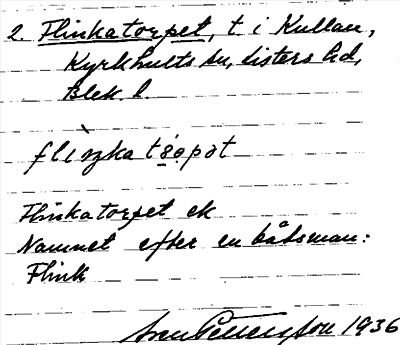 2. Flinkatorpet, t i Kullan,
Kyrkhults sn, Listers hd,
Blek. l.
Flinkatorpet ek
Namnet efter en båtsman:
Flink
Sven Pettersson 1936